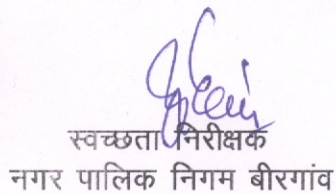 स्वच्छता निरीक्षक
नगर पालिक निगम बीरगांव